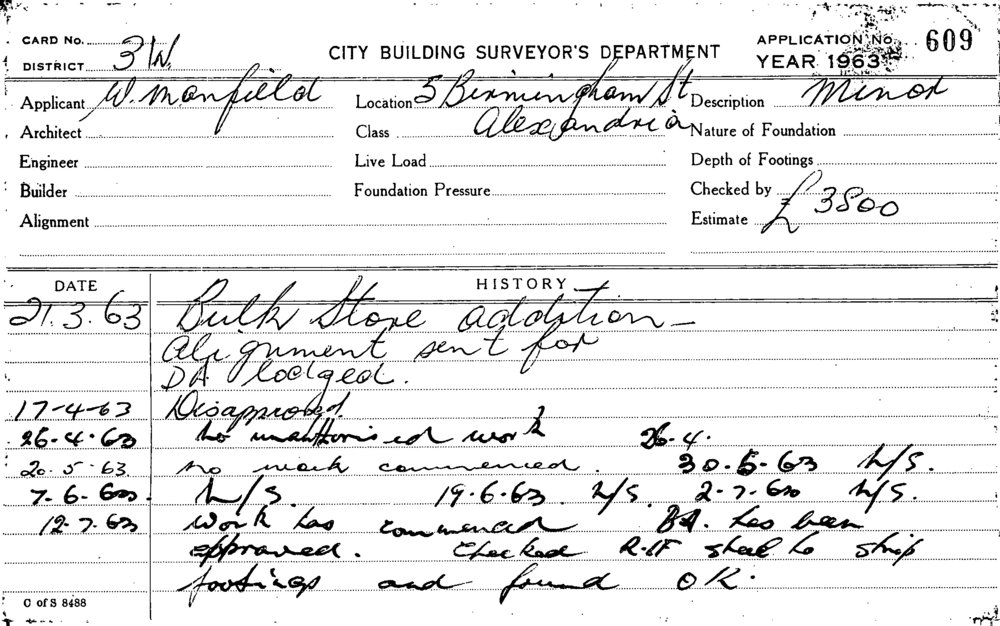 CARD No.
DISTRICT 3W.
CITY BUILDING SURVEYOR'S DEPARTMENT
APPLICATION No. 609
YEAR 1963
Applicant W. Manfield Location 5 Birmingham St Description Minor
Architect Class Alexandria Nature of Foundation
Engineer Live Load Depth of Footings
Builder Foundation Pressure Checked by
Alignment Estimate £3800
DATE HISTORY
21.3.63 Bulk Store addition –
Alignment sent for
DA lodged.
17-4-63 Disapproved.
26-4-63 no unauthorised work 26-4.
20.5.63 no work commenced. 30-5-63 N/S.
7-6-63. N/S. 19.6.63. N/S. 2-7-63 N/S.
12-7.63 Work has commenced BA. has been
approved. Checked steel to strip
footings and found OK.
C of S 8488